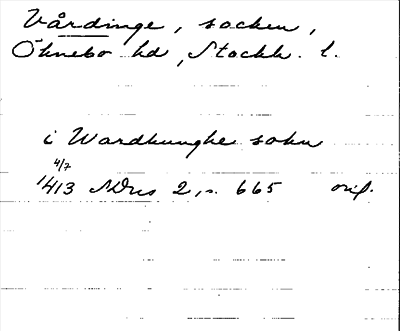 Vårdinge, socken,
Öknebo hd, Stockh. l.
i Wardhunghe sokn
4/7
1413 SDns 2, s. 665 orig.